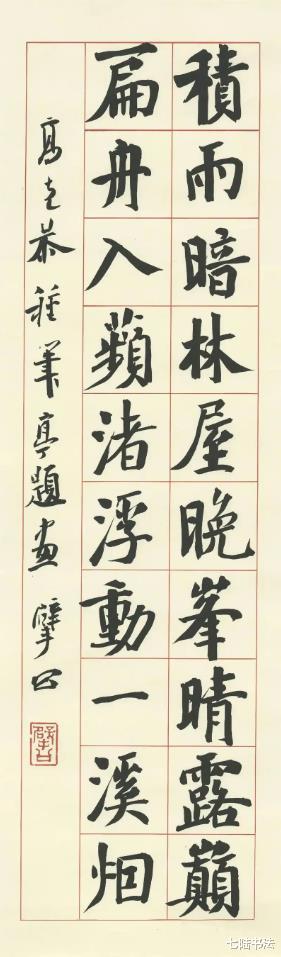 積雨暗林屋晚峯晴露巔
扁舟入蘋渚浮動一溪烟
高克恭種筆亭題画 擘公
七陆书法